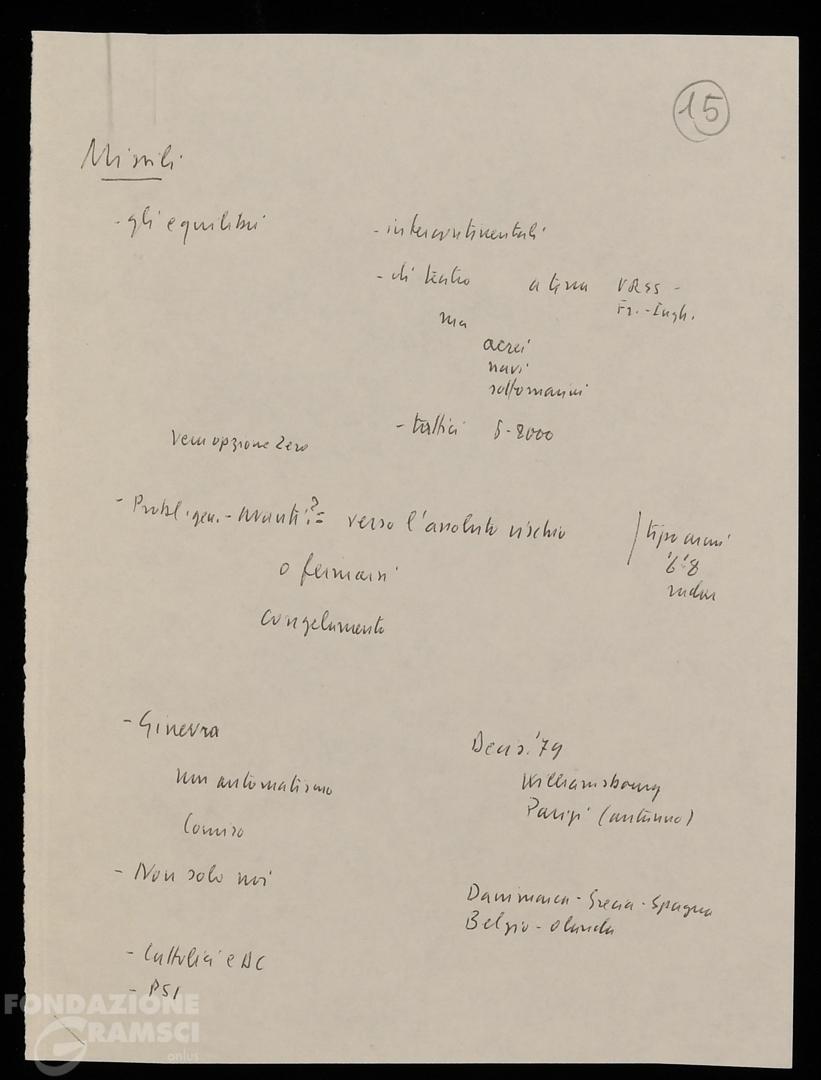 15
Missili
- gli equilibri
- intercontinentali
- di teatro a terra URSS -
Fr. - Ingh.
ma
aerei
navi
sottomarini
- tattici 5-8000
vera opzione zero
- Probl. gen. - avanti? = verso l'assoluto rischio
o fermarsi
congelamento
tipo armi
6'-8'
radar
- Ginevra
non automatismo
Comiso
Decis. '79
Williamsbourg
Parigi (autunno)
- Non solo noi
Danimarca - Grecia - Spagna
Belgio - Olanda
- Cattolici e DC
- PSI
FONDAZIONE
GRAMSCI
onlus